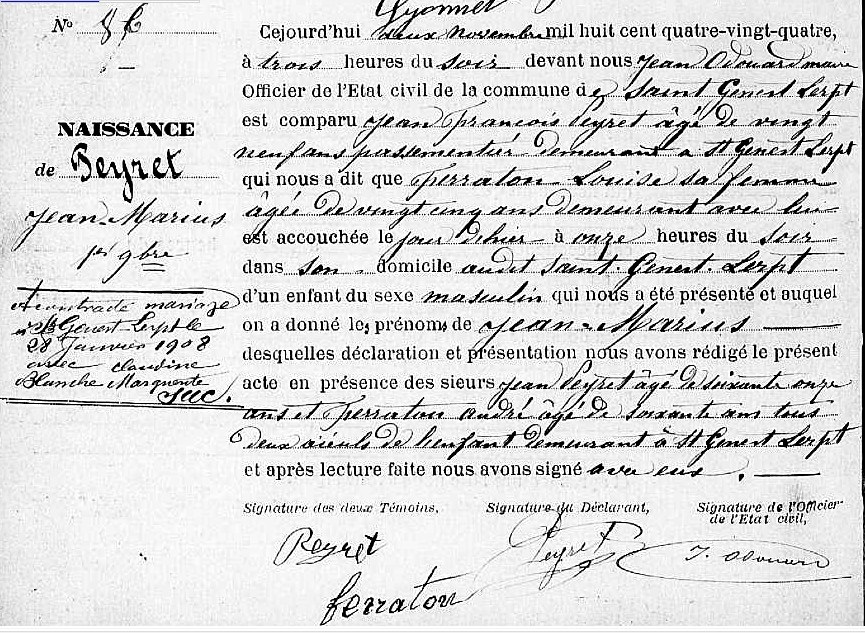 Lyonnet
N° 86
NAISSANCE
de Peyret
Jean-Marius
1er 9bre
A contracté mariage
à St Genest Lerpt le
28 Janvier 1908
avec Claudine
Blanche Marguerite
Suc.
Cejourd'hui deux novembre mil huit cent quatre-vingt-quatre,
à trois heures du soir devant nous Jean Odouard maire
Officier de l'Etat civil de la commune de Saint Genest Lerpt
est comparu Jean François Peyret âgé de vingt
neuf ans passementier demeurant à St Genest Lerpt
qui nous a dit que Ferraton Louise sa femme
âgée de vingt cinq ans demeurant avec lui
est accouchée le jour d'hier à onze heures du soir
dans son domicile audit Saint-Genest-Lerpt
d'un enfant du sexe masculin qui nous a été présenté et auquel
on a donné les prénoms de Jean-Marius
desquelles déclaration et présentation nous avons rédigé le présent
acte en présence des sieurs Jean Peyret âgé de soixante onze
ans et Ferraton andré âgé de soixante ans tous
deux aieuls de l'enfant demeurant à St Genest Lerpt
et après lecture faite nous avons signé avec eux.
Signature des deux Témoins, Signature du Déclarant, Signature de l'Officier
de l'Etat civil,
Peyret Peyret J. Odouard
ferraton